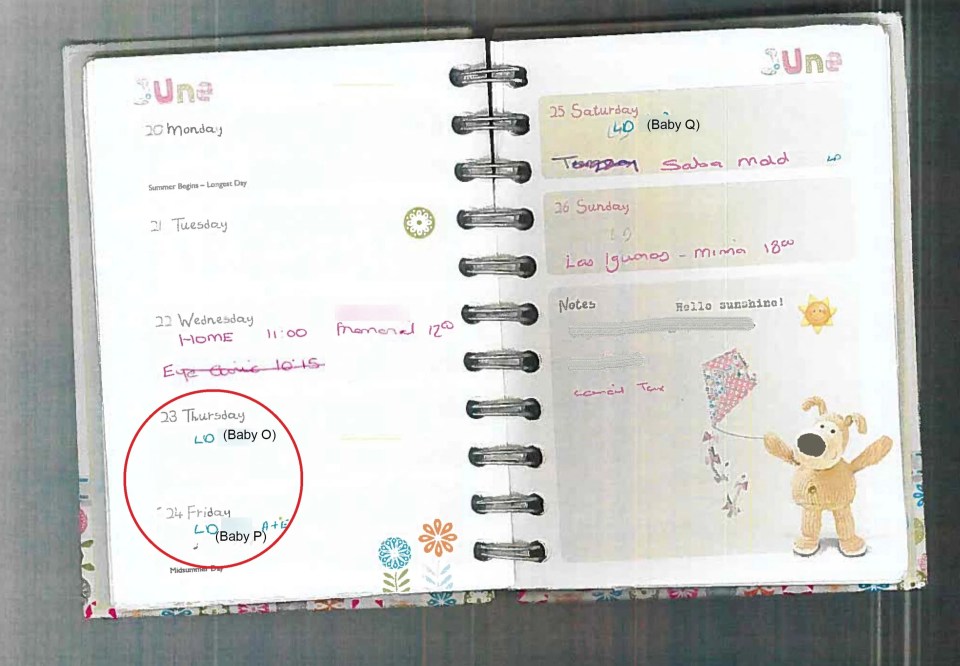 June
20 Monday
Summer Begins – Longest Day
21 Tuesday
22 Wednesday
HOME 11:00 12⁰⁰
Eye Clinic 10:15
23 Thursday
LD (Baby O)
24 Friday
LD A+E
(Baby P)
Midsummer Day
June
25 Saturday
LD (Baby Q)
Salsa Mold LD
26 Sunday
LD
Las Iguanas - 18⁰⁰
Notes Hello sunshine!
Tax